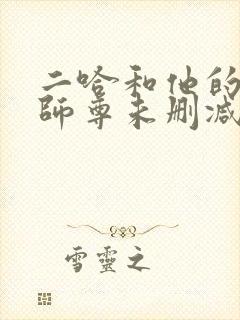 二哈和他的
师尊未删减
雪靈之